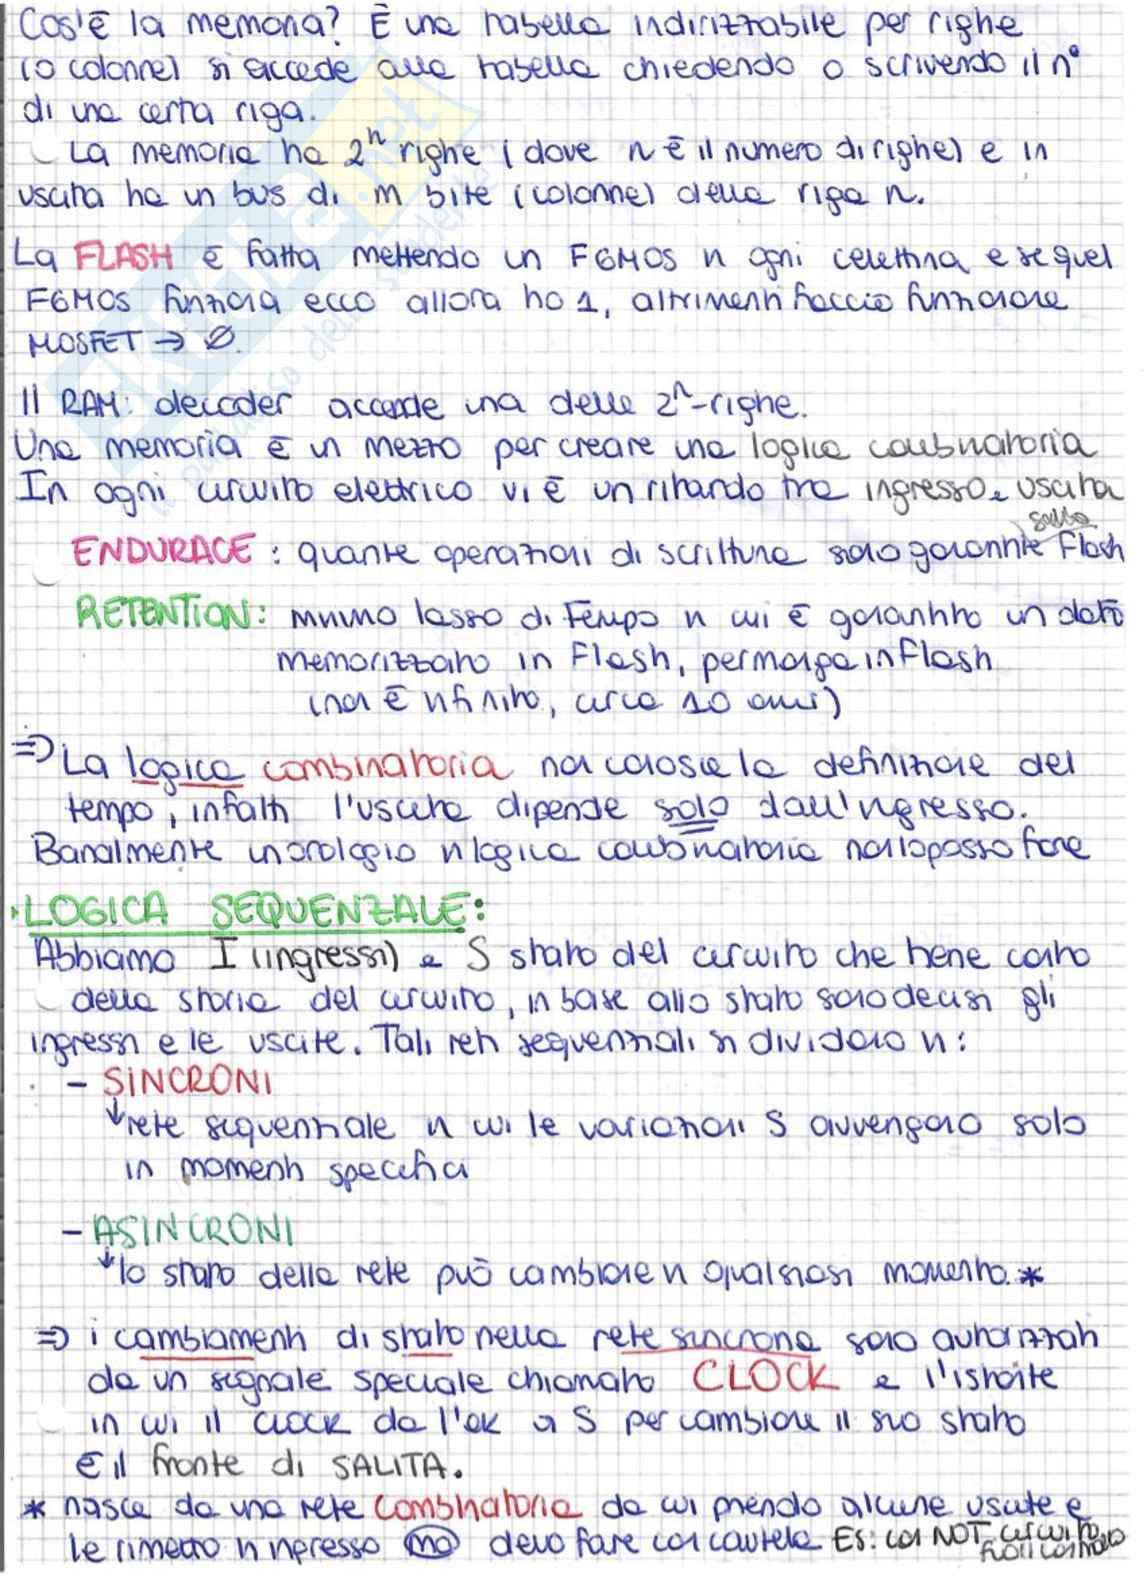 Cos'è la memoria? È una tabella indirizzabile per righe
(o colonne) si accede alla tabella chiedendo o scrivendo il n°
di una certa riga.
La memoria ha 2^n righe (dove n è il numero di righe) e in
uscita ha un bus di m bite (colonne) della riga n.
La FLASH è fatta mettendo un FGMOS in ogni celettina e se quel
FGMOS funziona ecco allora ho 1, altrimenti faccio funzionare
MOSFET → Ø.
Il RAM: decoder accende una delle 2^n-righe.
Una memoria è un mezzo per creare una logica combinatoria
In ogni circuito elettrico vi è un ritardo tra ingresso e uscita
ENDURACE : quante operazioni di scrittura sono garantite sulla Flash
RETENTION: minimo lasso di tempo in cui è garantito un dato
memorizzato in Flash, permanga in flash
(non è infinito, circa 10 anni)
⇒ La logica combinatoria non conosce la definizione del
tempo, infatti l'uscita dipende solo dall'ingresso.
Banalmente un orologio in logica combinatoria non lo posso fare
• LOGICA SEQUENZALE:
Abbiamo I (ingressi) e S stato del circuito che tiene conto
della storia del circuito, in base allo stato sono decisi gli
ingressi e le uscite. Tali reti sequenziali si dividono in:
- SINCRONI
↓ rete sequenziale in cui le variazioni S avvengono solo
in momenti specifici
- ASINCRONI
↓ lo stato della rete può cambiare in qualsiasi momento. *
⇒ i cambiamenti di stato nella rete sincrona sono autorizzati
da un segnale speciale chiamato CLOCK e l'istante
in cui il clock da l'ok a S per cambiare il suo stato
è il fronte di SALITA.
* nasce da una rete combinatoria da cui prendo alcune uscite e
le rimetto in ingresso ma devo fare con cautela Es: con NOT circuito
fuori controllo